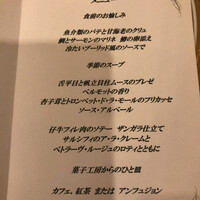 メニュー
食前のお愉しみ
魚介類のパテと甘海老のクリュ
鯛とサーモンのマリネ 鱒の卵添え
冷たいブーリッド風のソースで
季節のスープ
舌平目と帆立貝柱ムースのブレゼ
ベルモットの香り
杏子茸とトロンペット・ド・ラ・モールのフリカッセ
ソース・アルベール
仔牛フィレ肉のソテー ザンガラ仕立て
サルシフィのア・ラ・クレームと
ベトラーヴ・ルージュのロティとともに
菓子工房からのひと皿
カフェ、紅茶 または アンフュジョン